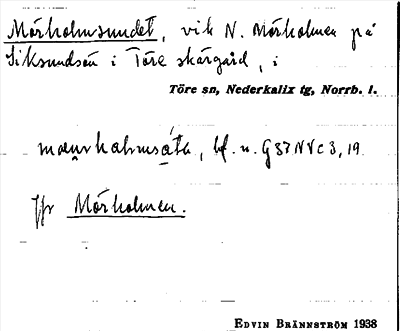 Mörholmsundet, vik N. Mörholmen på
Siksundsön i Töre skärgård, i
Töre sn, Nederkalix tg, Norrb. l.
bf. n. G 37 N V c 3, 19.
Jfr Mörholmen.
EDVIN BRÄNNSTRÖM 1938